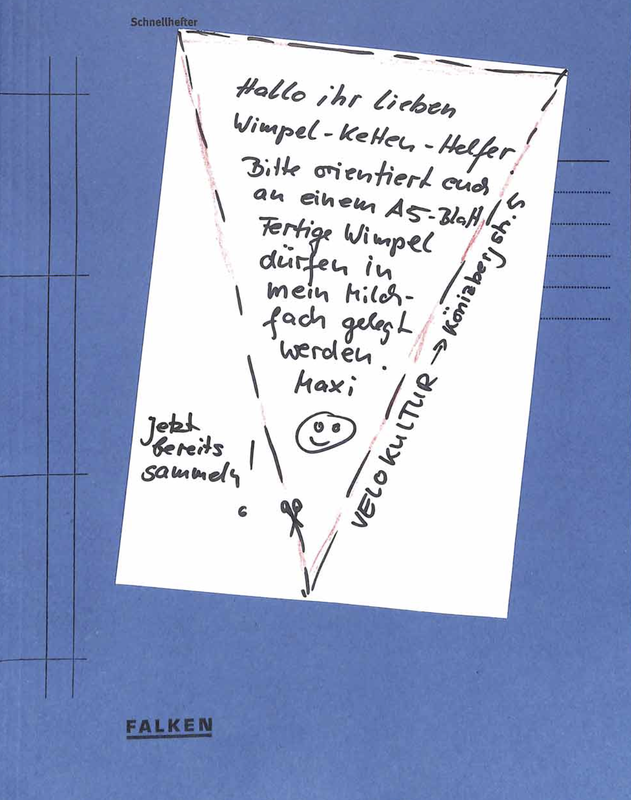 Schnellhefter
Hallo ihr lieben
Wimpel-Ketten-Helfer
Bitte orientiert euch
an einem A5-Blatt
Fertige Wimpel
dürfen in
mein Milch-
fach gelegt
werden.
Maxi
Jetzt
bereits
sammeln
VELOKULTUR → Könizbergstr. 5
FALKEN